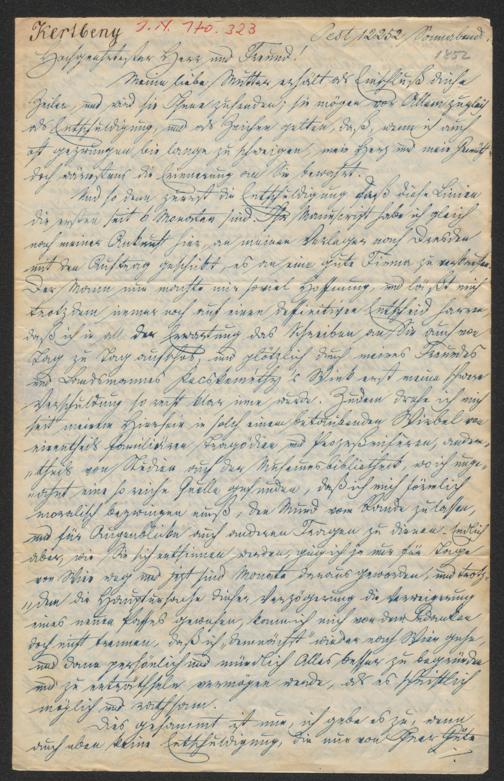 Kertbeny J.N. 140.323 Pest 12252 Sonnabend.
1852
Hochgeehrtester Herr und Freund!
Meine liebe Mutter erhält als Einschluß diese
Zeilen, und wird sie Ihnen zusenden; sie mögen vor Allem zugleich
als Entschuldigung, und als Zeichen gelten, daß, wenn ich auch
oft gezwungen bin lange zu schweigen, mein Herz und mein Gemüth
doch wärmstens die Erinnerung an Sie bewahrt.
Und so denn zuerst die Entschuldigung daß diese Linien
die ersten seit 6 Monaten sind. Ihr Manuscript habe ich gleich
nach meiner Ankunft hier, an meinen Verleger nach Dresden
mit dem Auftrag geschickt, es an eine gute Firma zu
Der Mann nun machte mir soviel Hoffnung, und ließ mich
trotzdem immer noch auf einen definitiven Entscheid harren
daß ich in all der Erwartung das Schreiben an Sie auch von
Tag zu Tag aufschob, und plötzlich durch meines Freundes
und Landsmannes Kecskeméthy's Wink erst meine schwere
Verschuldung so recht klar inne wurde. Zudem drehe ich mich
seit meinem Hiersein in solch einem betäubenden Wirbel von
einentheils familiären Tragödien und Prozeßwirren, andern,
"theils von Studien auf der Museumsbibliothek, wo ich unge,
"ahnt eine so reiche Quelle gefunden, daß ich mich förmlich
moralisch bezwingen muß, den Mund vom Rande zu lassen,
und für Augenblicke auch anderen Fragen zu dienen. Endlich
aber, wie Sie sich entsinnen werden, ging ich ja nur für Tage
von Wien weg und jetzt sind Monate daraus geworden, und trotz,
"dem die Hauptursache dieser Verzögerung die Verweigerung
eines neuen Passes gewesen, kann ich mich von dem Gedanken
doch nicht trennen, daß ich demnächst wieder nach Wien gehe,
und dann persönlich und mündlich Alles besser zu begründen
und zu enträthseln vermögen werde, als es schriftlich
möglich und rathsam.
Dies gesammt ist nun, ich gebe es zu, wenn
auch eben keine Entschuldigung, die nur von Ihrer Güte